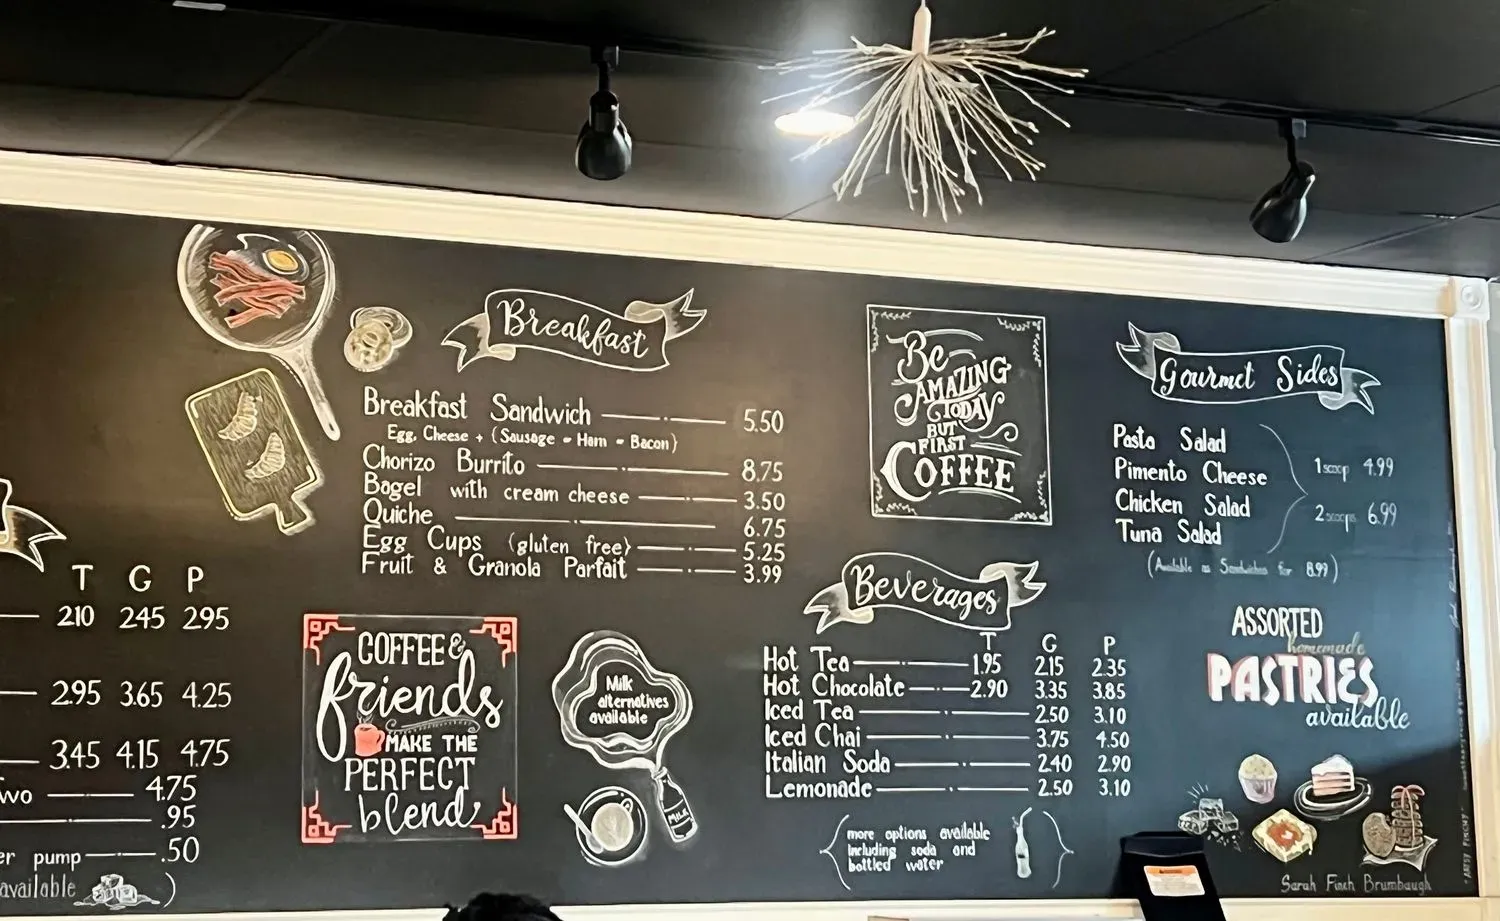 T G P
210 245 295
2.95 3.65 4.25
3.45 4.15 4.75
4.75
.95
pump .50
available )
Breakfast
Breakfast Sandwich 5.50
Egg, Cheese + (Sausage - Ham - Bacon)
Chorizo Burrito 8.75
Bagel with cream cheese 3.50
Quiche 6.75
Egg Cups (gluten free) 5.25
Fruit & Granola Parfait 3.99
COFFEE &
friends
MAKE THE
PERFECT
blend
Milk
alternatives
available
MILK
Be
AMAZING
TODAY
BUT
FIRST
COFFEE
Beverages
T G P
Hot Tea 1.95 2.15 2.35
Hot Chocolate 2.90 3.35 3.85
Iced Tea 2.50 3.10
Iced Chai 3.75 4.50
Italian Soda 2.40 2.90
Lemonade 2.50 3.10
more options available
including soda and
bottled water
Gourmet Sides
Pasta Salad
Pimento Cheese
Chicken Salad
Tuna Salad
1 scoop 4.99
2 scoops 6.99
(Available as Sandwiches for 8.99)
ASSORTED
homemade
PASTRIES
available
Sarah Finch Brumbaugh